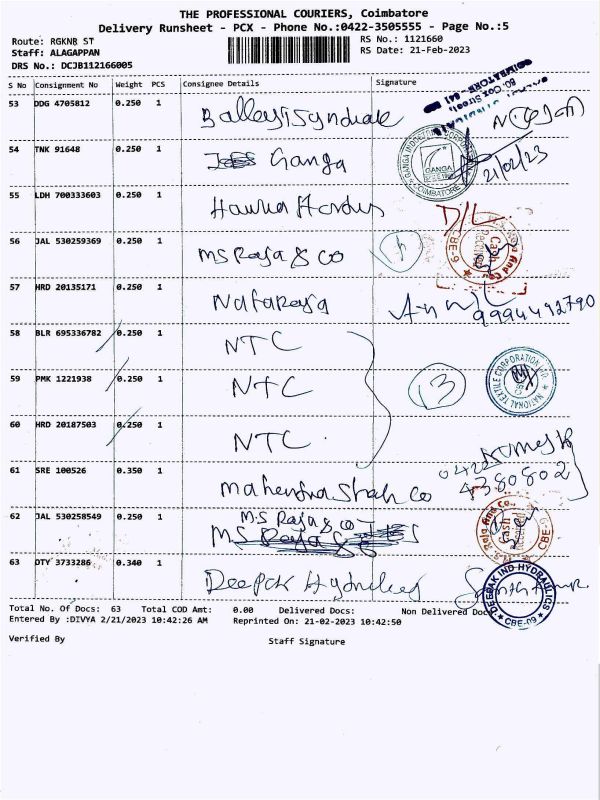 THE PROFESSIONAL COURIERS, Coimbatore
Delivery Runsheet - PCX - Phone No.:0422-3505555 - Page No.:5
Route: RGKNR ST
RS No.: 1121660
Staff: ALAGAPPAN
RS Date: 21-Feb-2023
DRS No.: DCJB112166005
S No Consignment No Weight PCS Consignee Details Signature
53 DDG 4705812 0.250 1
54 TNK 91648 0.250 1 Ganga
GANGA
COIMBATORE
21/02/23
55 LDH 700333603 0.250 1
D/L
56 JAL 530259369 0.250 1 MS Raja & Co
Cash
Received
CBE-9
57 HRD 20135171 0.250 1 Nataraja
9994492790
58 BLR 695336782 0.250 1 NTC
59 PMK 1221938 0.250 1 NTC
13
NATIONAL TEXTILE CORPORATION LTD
60 HRD 20187503 0.250 1 NTC
61 SRE 100526 0.350 1 Mahendra Shah Co
0422
4380802
62 JAL 530258549 0.250 1 M.S Raja & co
MS Raja & Co
Cash
Received
63 DTY 3733286 0.340 1 Deepak Hydraulics
DEEPAK IND-HYDRAULICS
CBE-09
Total No. Of Docs: 63 Total COD Amt: 0.00 Delivered Docs: Non Delivered Docs
Entered By :DIVYA 2/21/2023 10:42:26 AM Reprinted On: 21-02-2023 10:42:50
Verified By Staff Signature